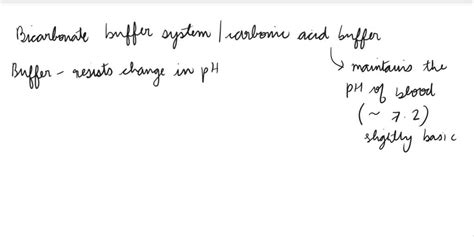 Bicarbonate buffer system / carbonic acid buffer
Buffer - resists change in pH
↳ maintains the
pH of blood
(~ 7.2)
slightly basic